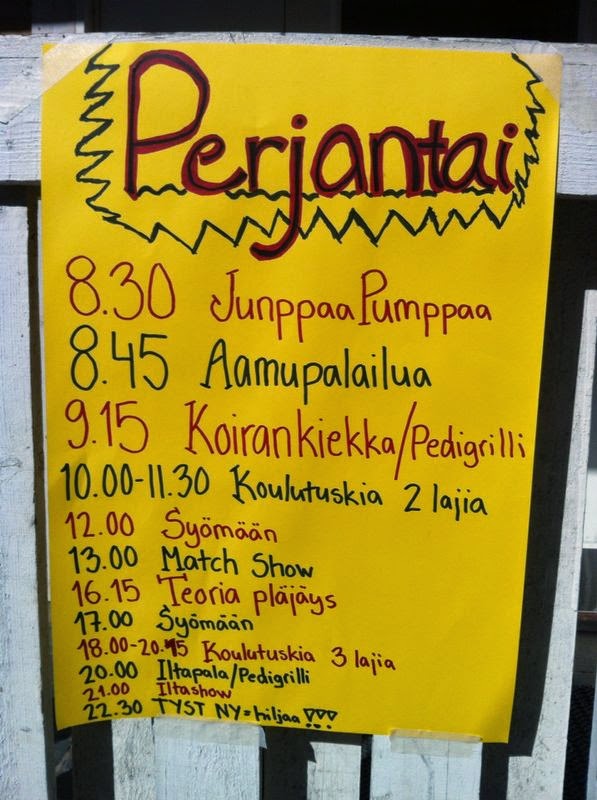 Perjantai
8.30 Junppaa Pumppaa
8.45 Aamupalailua
9.15 Koirankiekka/Pedigrilli
10.00-11.30 Koulutuskia 2 lajia
12.00 Syömään
13.00 Match Show
16.15 Teoria pläjäys
17.00 Syömään
18.00-20.15 Koulutuskia 3 lajia
20.00 Iltapala/Pedigrilli
21.00 Iltashow
22.30 TYST NY=hiljaa !!!